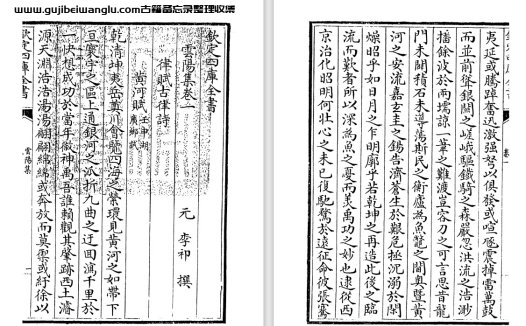 www.gujibeiwanglu.com古籍备忘录整理收集
欽定四庫全書
雲陽集卷一
元 李祁 撰
律賦古律詩
黃河賦 壬申湖廣鄉試
乾清坤夷岳奠川會覽四海之縈環見黃河之如帶下
亘寰宇之區上通銀河之派折九曲之迂回瀉千里於
一快想成功於當年欽神禹吾誰賴觀其肇跡西土濬
源天淵浩浩湯湯翩翩綿綿或奔放而莫禦或紆徐以
欽定四庫全書
雲陽集
夷延或騰踔奮迅激强弩以俱發或喧豗震掉當萬鼓
而並前聳銀闕之嵯峨驅鐵騎之森嚴忽洪流之浩渺
捨餘波於兩壖諒一葦之難渡豈容刀之可言思昔龍
門未闢積石未導蕩斯民之衡廬為魚鼈之閫奥暨黄
河之安流嘉玄圭之錫告濟蒼生於艱危拯沉溺於
燥昭乎如日月之乍明廓乎若乾坤之再造此後之臨
流而歎者所以深為魚之憂而美禹功之妙也逮從西
京治化昭明何壮心之未已復馳騖於遠征命彼張騫